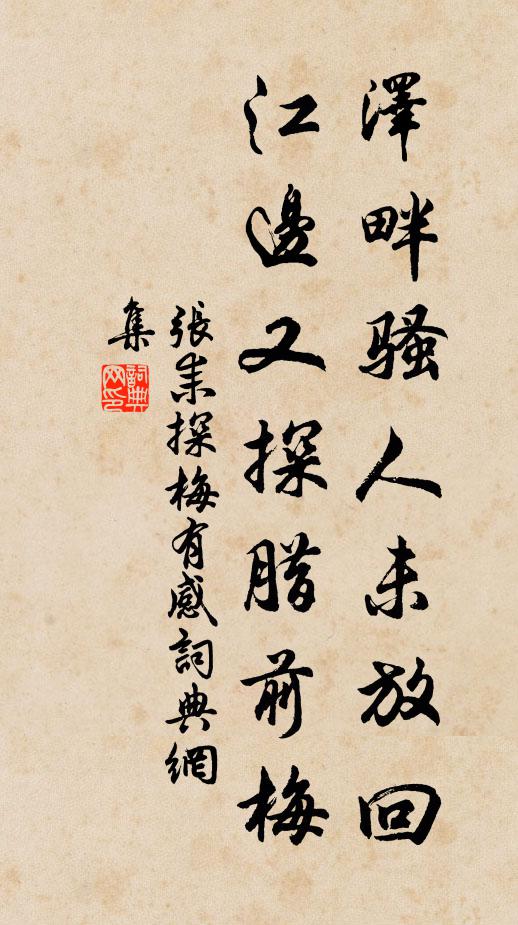 澤畔騷人未放回
江邊又探腊前梅
張耒探梅有感詞典網
集
詞典网印